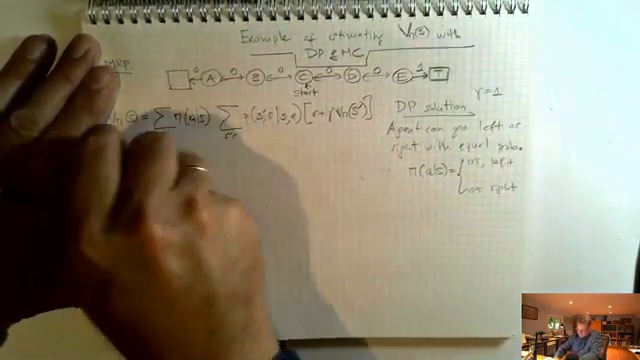 Example of estimating Vπ(s) with
DP & MC
MRP
0 A 0 B 0 C 0 D 0 E 1 T
start
Vπ(s) = Σ π(a|s) Σ p(s',r|s,a) [r+γVπ(s')]
s'r
DP solution γ=1
Agent can go left or
right with equal prob.
π(a|s) = { 0.5, left
0.5 right